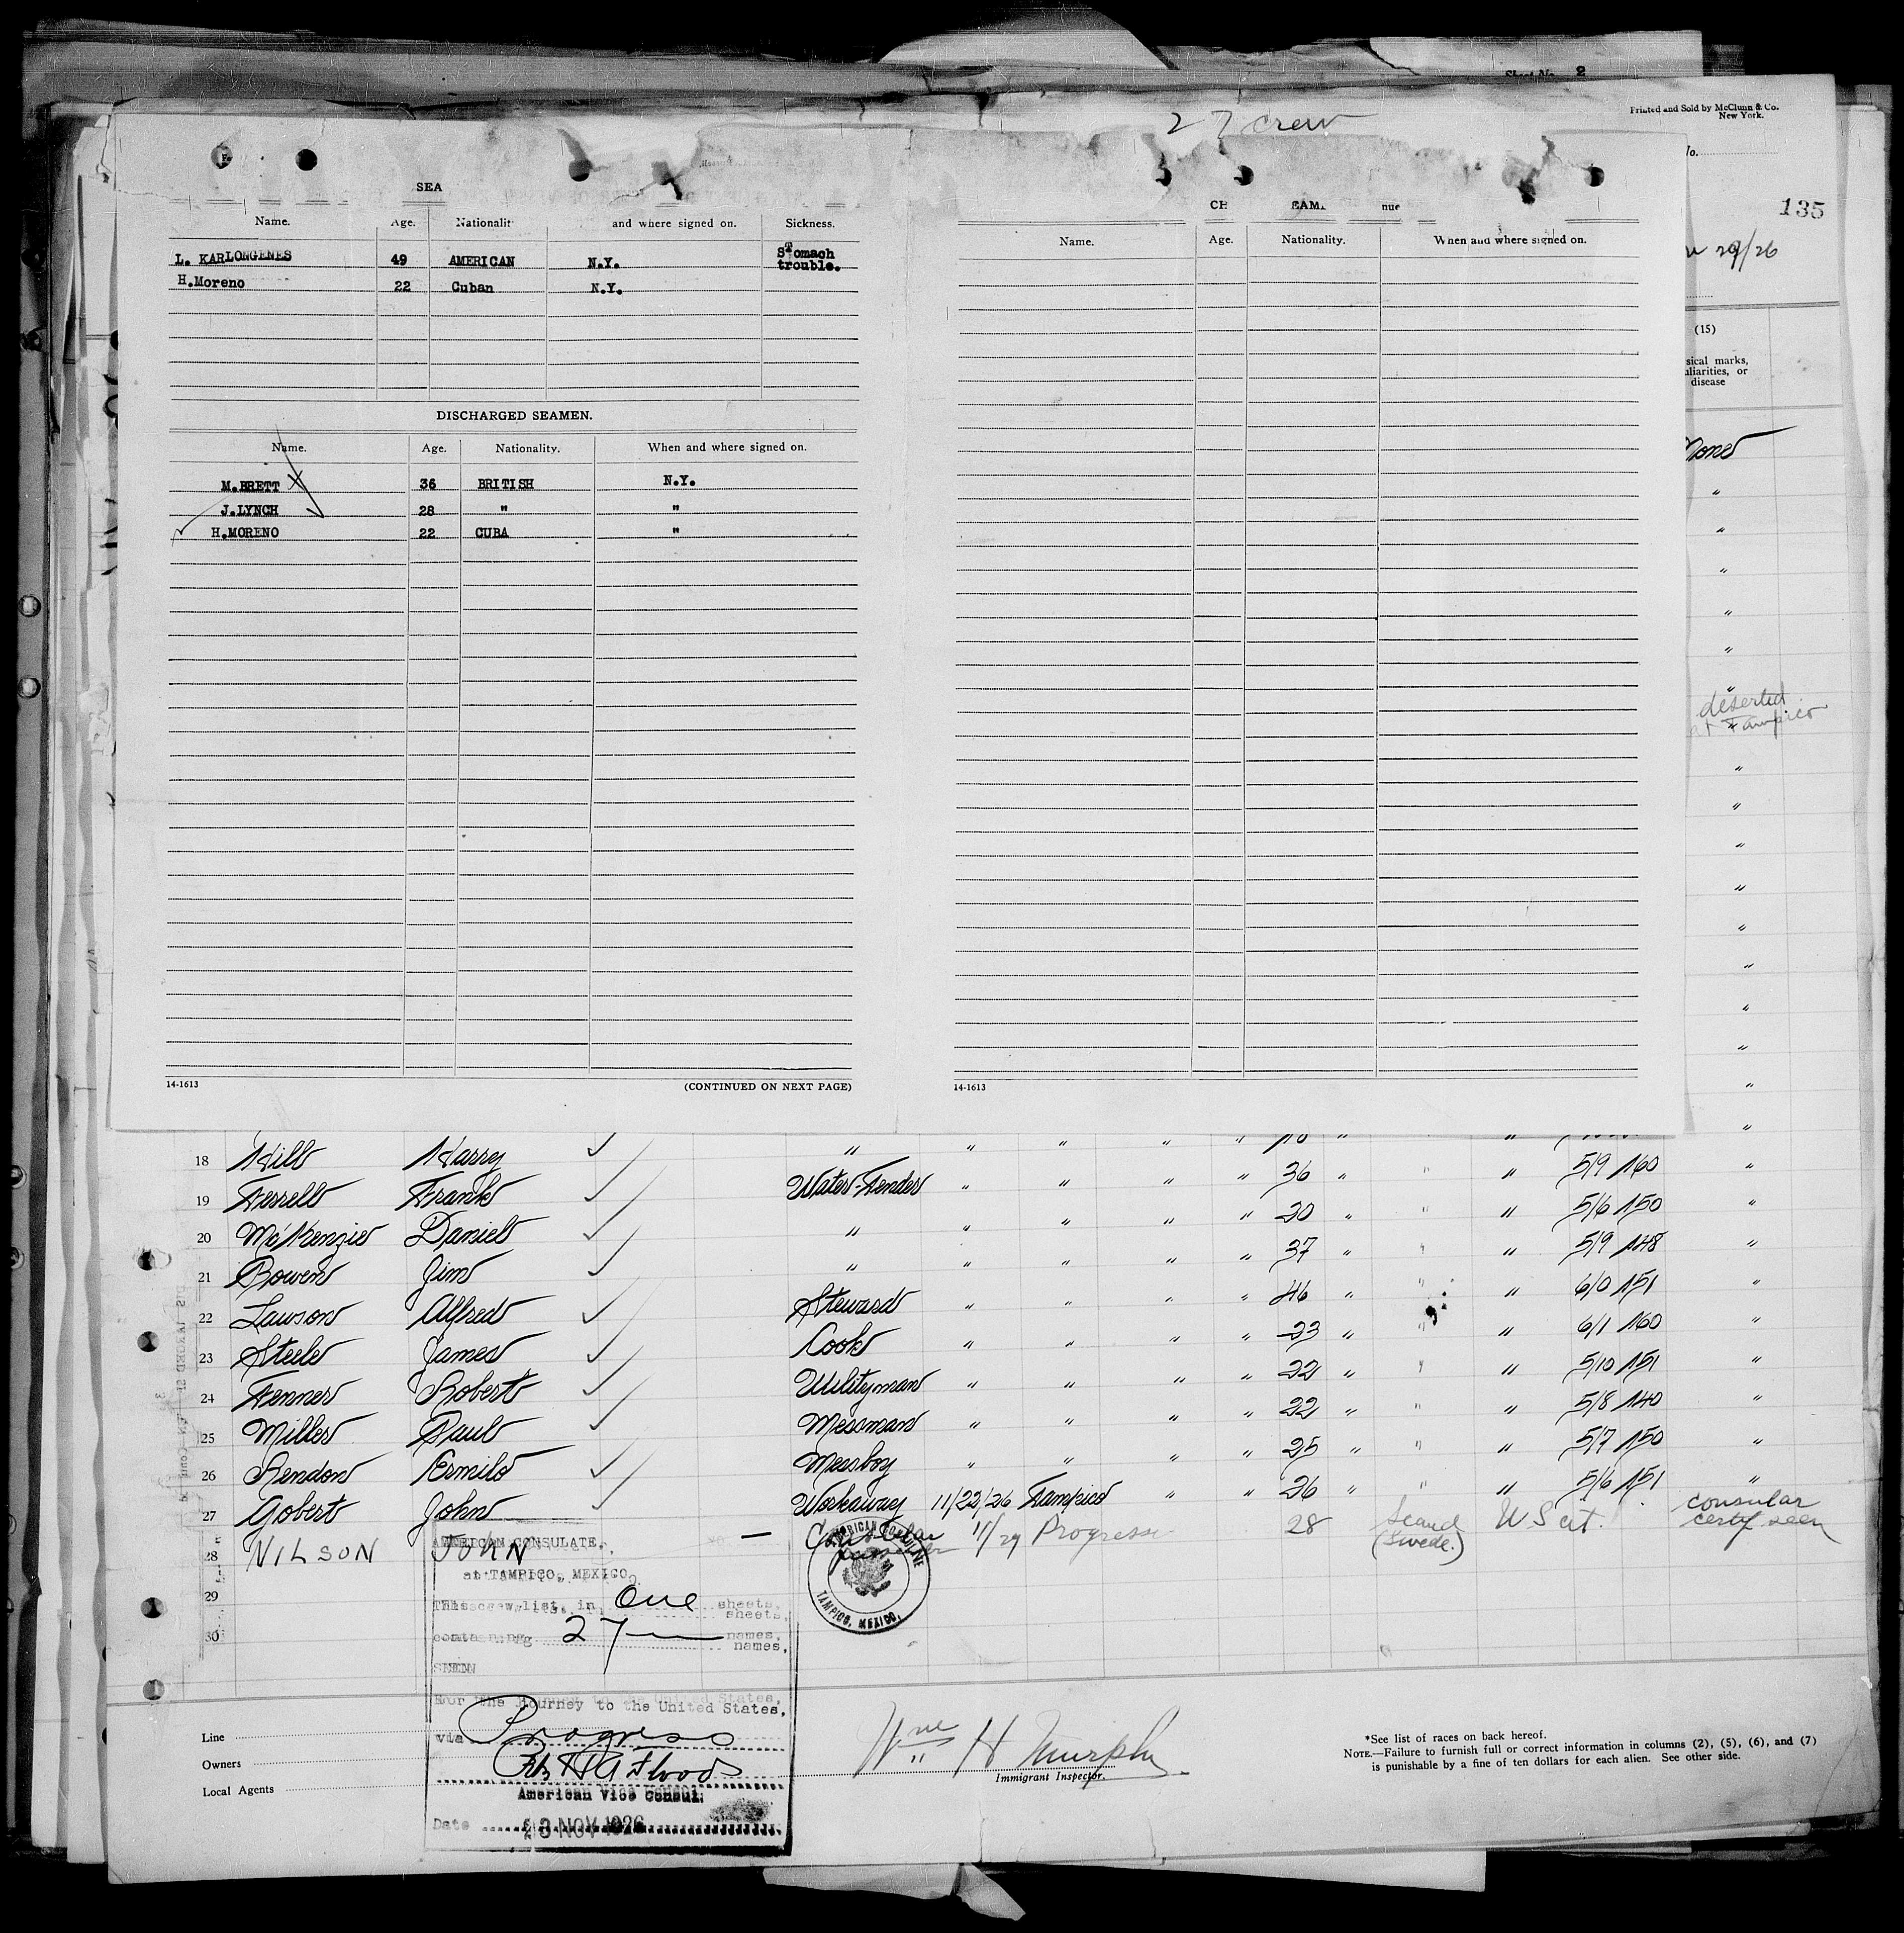 Sheet No. 2
Printed and Sold by McClunn & Co.
New York.
27 crew
No.
135
29/26
SEA
Name. Age. Nationalit and where signed on. Sickness.
L. KARLONGENES 49 AMERICAN N.Y. Stomach trouble.
H.Moreno 22 Cuban N.Y.
DISCHARGED SEAMEN.
Name. Age. Nationality. When and where signed on.
M.BRETT X 36 BRITISH N.Y.
J.LYNCH 28 " "
✓ H.MORENO 22 CUBA "
14-1613 (CONTINUED ON NEXT PAGE)
Name. Age. Nationality. When and where signed on.
14-1613
(15)
sical marks,
uliarities, or
disease
None
"
"
"
"
"
"
deserted
at Tampico
"
"
"
"
"
"
"
"
"
"
18 Hill Harry ✓ " " " " "
19 Ferrell Frank ✓ Water-Tender " " " " 36 " " " 5/9 160 "
20 McKenzie Daniel ✓ " " " " " 30 " " " 5/6 150 "
21 Bowen Jim ✓ " " " " " 37 " " " 5/9 148 "
22 Lawson Alfred ✓ Steward " " " " 46 " " " 6/0 151 "
23 Steele James ✓ Cook " " " " 23 " " " 6/1 160 "
24 Fenner Robert ✓ Utilityman " " " " 22 " " " 5/10 151 "
25 Miller Paul ✓ Messman " " " " 22 " " " 5/8 140 "
26 Rendon Ermilo ✓ Messboy " " " " 25 " " " 5/7 150 "
27 Gobert John ✓ Workaway 11/22/26 Tampico " " 26 " " " 5/6 151 "
28 NILSON JOHN — Consular 11/29 Progresso 28 Scand (Swede.) U S cit. consular certif seen
29
30
AMERICAN CONSULATE,
at TAMPICO, MEXICO
This crew list, in One sheets,
containing 27 names,
SEEN
For the journey to the United States,
via Progreso
American Vice Consul
Date 23 NOV 1926
AMERICAN CONSULATE
TAMPICO, MEXICO.
Line
Owners
Local Agents
Wm H Murphy
Immigrant Inspector.
*See list of races on back hereof.
NOTE.—Failure to furnish full or correct information in columns (2), (5), (6), and (7)
is punishable by a fine of ten dollars for each alien. See other side.